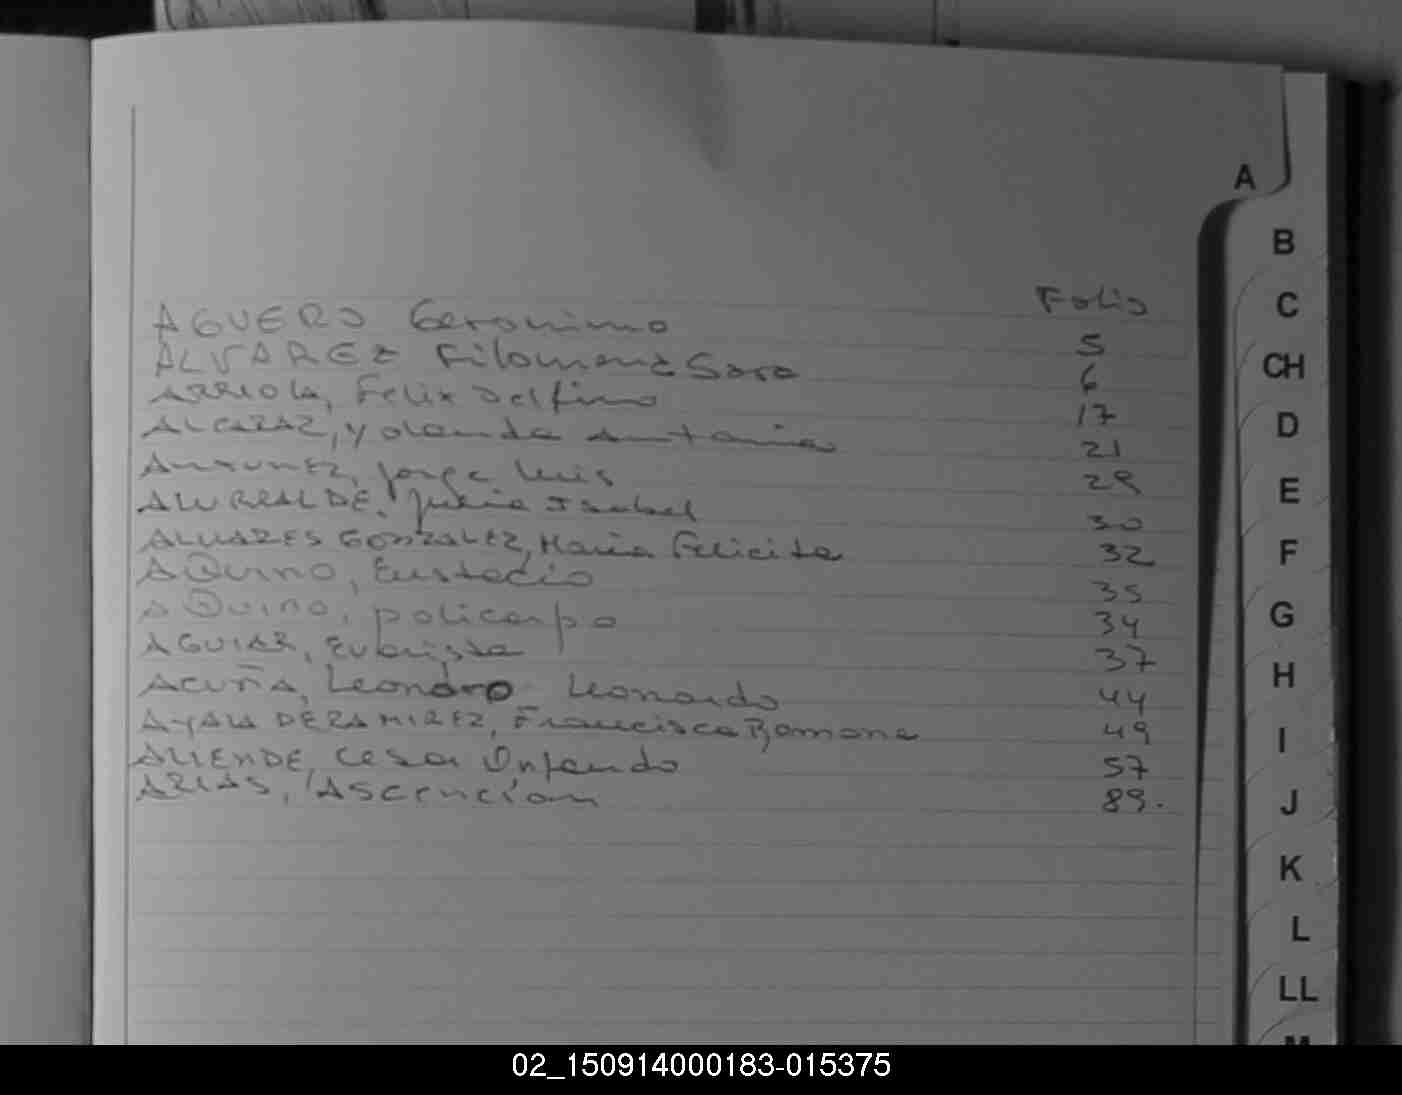 A
B
Folio
C
AGUERO Geronimo 5
ALVAREZ Filomena Sara 6
CH
ARRIOLA, Felix Delfino 17
ALCARAZ, Yolanda Antonia 21
D
ANTUNEZ, Jorge Luis 29
ALURRALDE, Julia Isabel 30
E
ALVARES GONZALEZ, Maria Felicita 32
F
AQUINO, Eustacio 35
AQuino, policarpo 34
G
AGUIAR, Evarista 37
H
ACUÑA, Leonardo 44
AYALA DE RAMIREZ, Francisca Ramona 49
I
ALIENDE, Cesar Orlando 57
ARIAS, Ascencion 89.
J
K
L
LL
M
02_150914000183-015375